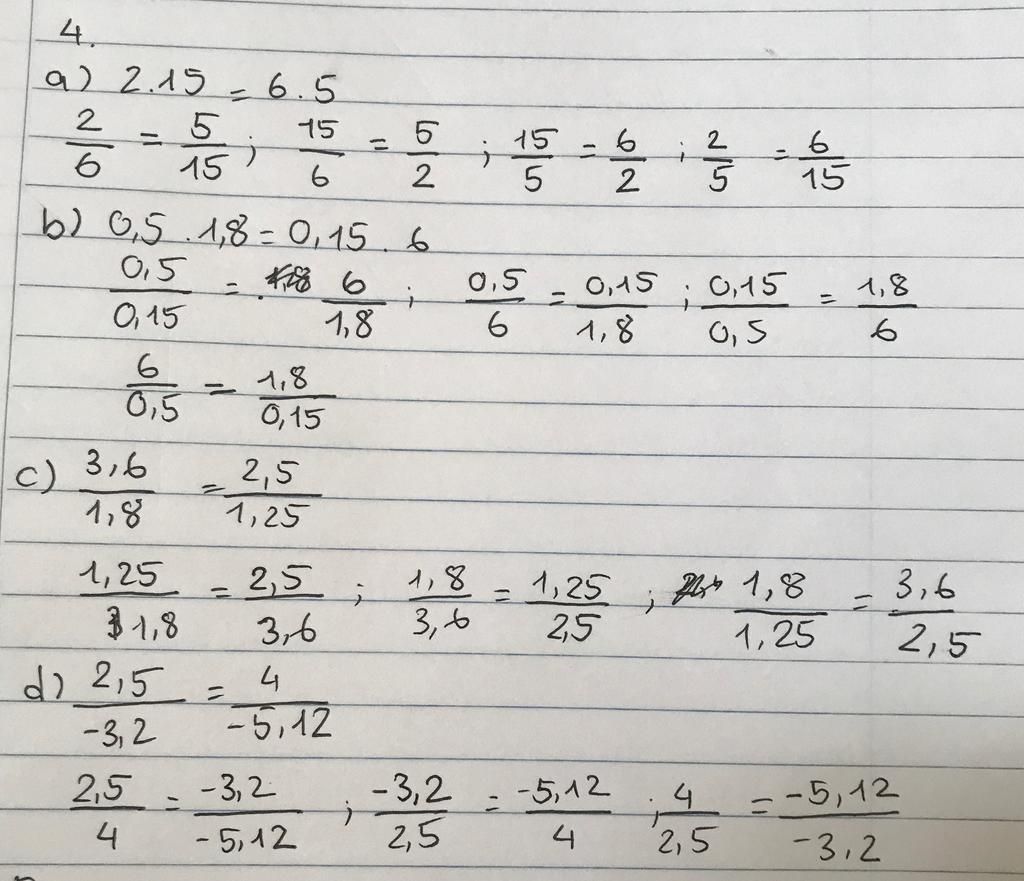 4.
a) 2.15 = 6.5
2/6 = 5/15 ; 15/6 = 5/2 ; 15/5 = 6/2 ; 2/5 = 6/15
b) 0,5 . 1,8 = 0,15 . 6
0,5/0,15 = 6/1,8 ; 0,5/6 = 0,15/1,8 ; 0,15/0,5 = 1,8/6
6/0,5 = 1,8/0,15
c) 3,6/1,8 = 2,5/1,25
1,25/1,8 = 2,5/3,6 ; 1,8/3,6 = 1,25/2,5 ; 1,8/1,25 = 3,6/2,5
d) 2,5/-3,2 = 4/-5,12
2,5/4 = -3,2/-5,12 ; -3,2/2,5 = -5,12/4 ; 4/2,5 = -5,12/-3,2